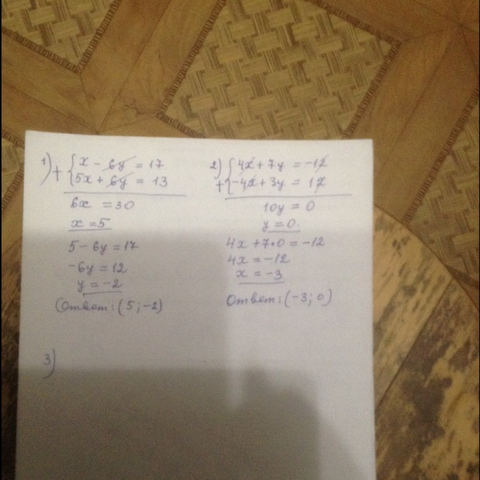 1) + { x - 6y = 17
5x + 6y = 13
6x = 30
x = 5
5 - 6y = 17
-6y = 12
y = -2
Ответ: (5; -2)
2) + { 4x + 7y = -12
-4x + 3y = 12
10y = 0
y = 0.
4x + 7•0 = -12
4x = -12
x = -3
Ответ: (-3; 0)
3)